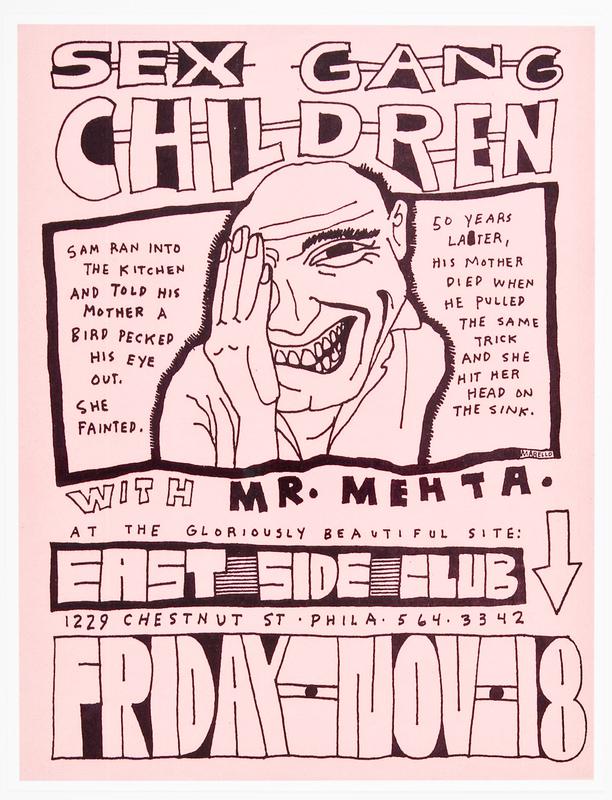 SEX GANG
CHILDREN
SAM RAN INTO
THE KITCHEN
AND TOLD HIS
MOTHER A
BIRD PECKED
HIS EYE
OUT.
SHE
FAINTED.
50 YEARS
LATER,
HIS MOTHER
DIED WHEN
HE PULLED
THE SAME
TRICK
AND SHE
HIT HER
HEAD ON
THE SINK.
WITH MR. MEHTA.
AT THE GLORIOUSLY BEAUTIFUL SITE:
EAST SIDE CLUB
1229 CHESTNUT ST · PHILA · 564·3342
FRIDAY-NOV-18